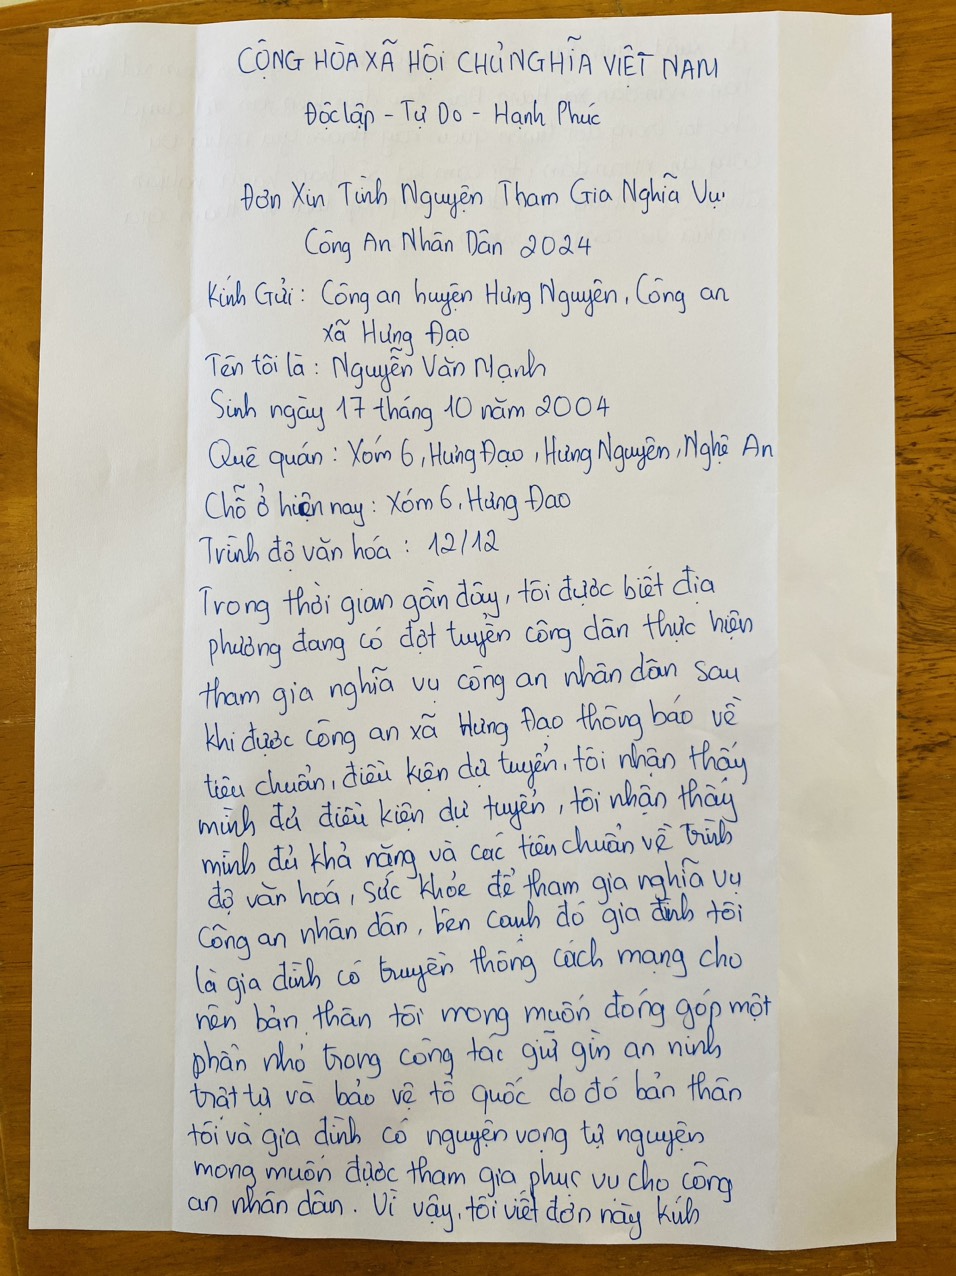 CỘNG HÒA XÃ HỘI CHỦ NGHĨA VIỆT NAM
Độc lập - Tự Do - Hạnh Phúc
Đơn Xin Tình Nguyện Tham Gia Nghĩa Vụ
Công An Nhân Dân 2024
Kính Gửi : Công an huyện Hưng Nguyên, Công an
xã Hưng Đạo
Tên tôi là : Nguyễn Văn Mạnh
Sinh ngày 17 tháng 10 năm 2004
Quê quán : Xóm 6, Hưng Đạo, Hưng Nguyên, Nghệ An
Chỗ ở hiện nay : Xóm 6, Hưng Đạo
Trình độ văn hóa : 12/12
Trong thời gian gần đây, tôi được biết địa
phương đang có đợt tuyển công dân thực hiện
tham gia nghĩa vụ công an nhân dân sau
khi được công an xã Hưng Đạo thông báo về
tiêu chuẩn, điều kiện dự tuyển, tôi nhận thấy
mình đủ điều kiện dự tuyển, tôi nhận thấy
mình đủ khả năng và các tiêu chuẩn về trình
độ văn hoá, sức khỏe để tham gia nghĩa vụ
công an nhân dân, bên cạnh đó gia đình tôi
là gia đình có truyền thống cách mạng cho
nên bản thân tôi mong muốn đóng góp một
phần nhỏ trong công tác giữ gìn an ninh
trật tự và bảo vệ tổ quốc do đó bản thân
tôi và gia đình có nguyện vọng tự nguyện
mong muốn được tham gia phục vụ cho công
an nhân dân. Vì vậy, tôi viết đơn này kính